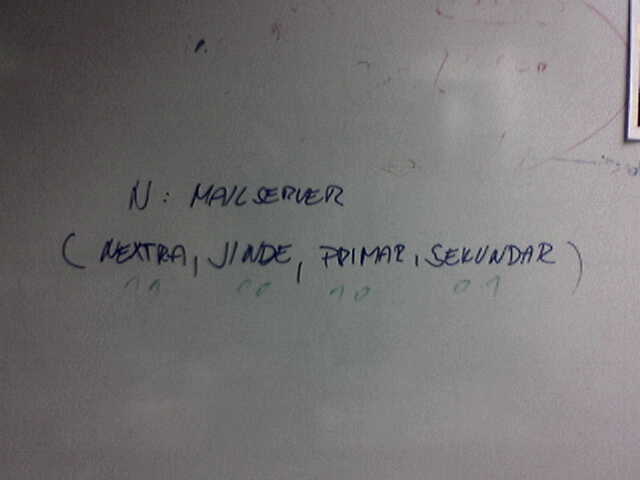 N: MAILSERVER
(NEXTRA, JINDE, PRIMAR, SEKUNDAR)
11 00 10 01